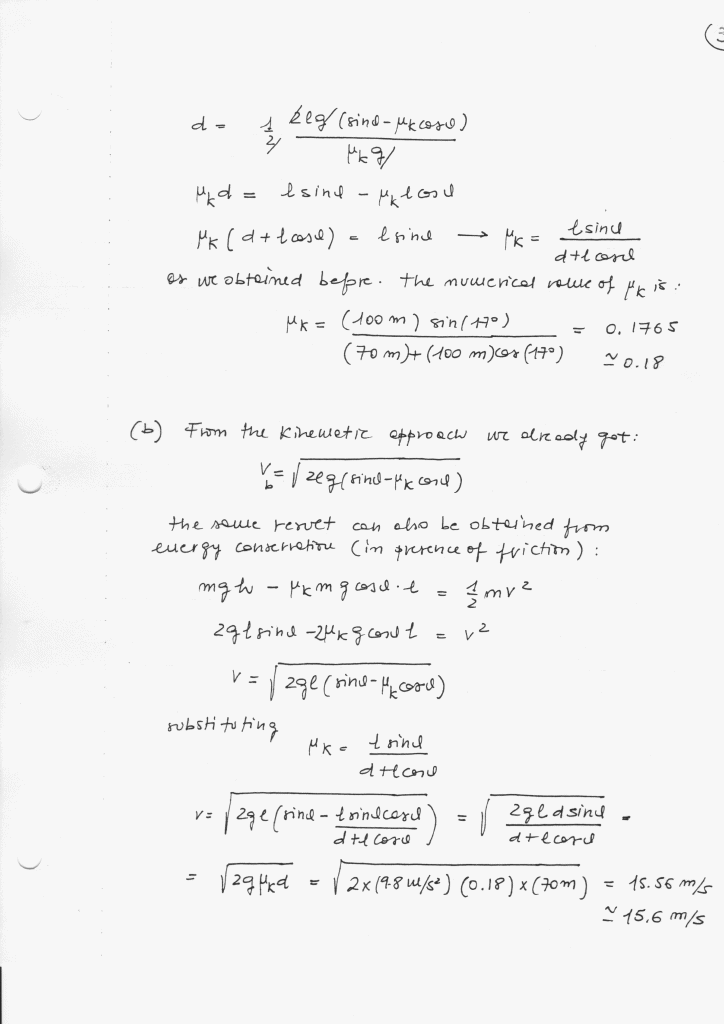 3
d = 1/2 2lg (sinθ - μk cosθ) / μk g
μk d = l sinθ - μk l cosθ
μk (d + l cosθ) = l sinθ → μk = l sinθ / d + l cosθ
as we obtained before. the numerical value of μk is :
μk = (100 m) sin(17°) / (70 m) + (100 m) cos(17°) = 0.1765
≃ 0.18
(b) From the kinematic approach we already got:
Vb = √2lg(sinθ - μk cosθ)
the same result can also be obtained from
energy conservation (in presence of friction) :
mgh - μk mg cosθ · l = 1/2 mv²
2gl sinθ - 2μk g cosθ l = v²
V = √2gl (sinθ - μk cosθ)
substituting
μk = l sinθ / d + l cosθ
v = √2gl (sinθ - l sinθ cosθ / d + l cosθ) = √2gld sinθ / d + l cosθ =
= √2g μk d = √2x(9.8 m/s²) (0.18) x (70m) = 15.56 m/s
≃ 15.6 m/s